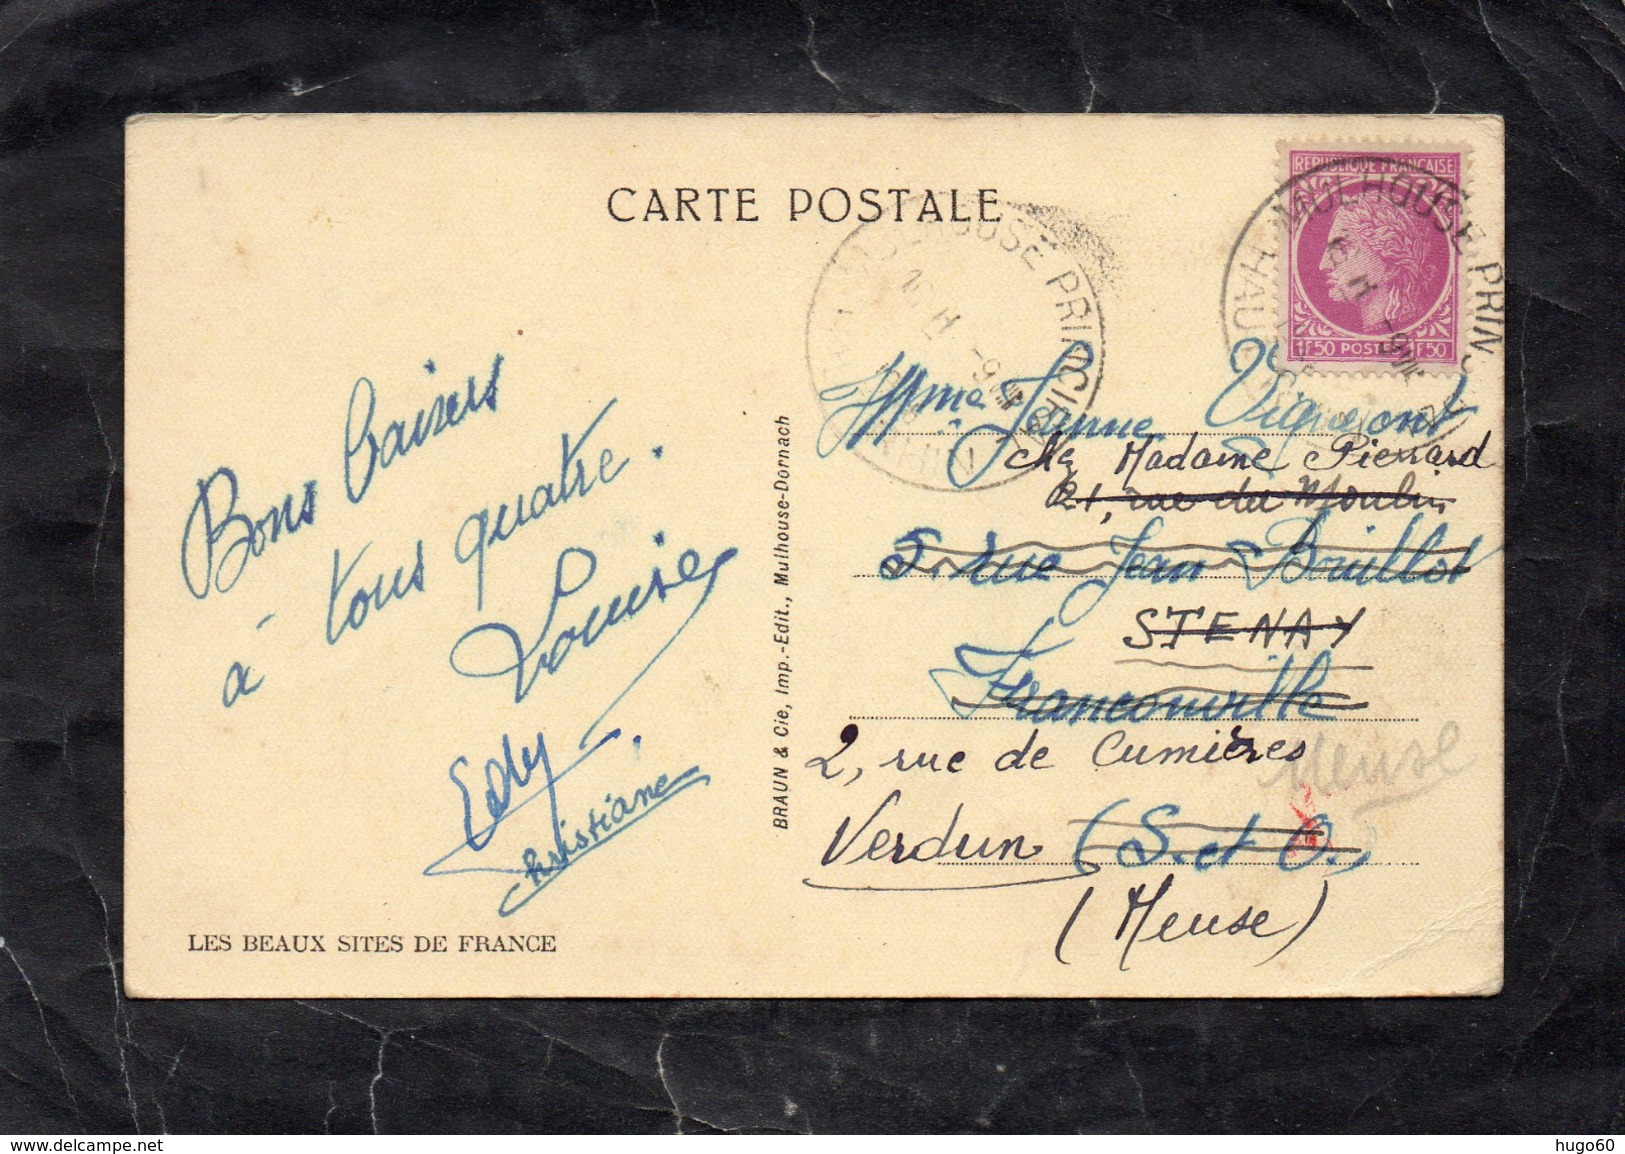 CARTE POSTALE
REPUBLIQUE FRANÇAISE
1F50 POSTES 1F50
MULHOUSE PRINCIPAL
HAUT-RHIN
16 H
Bons baisers
à tous quatre.
Louise
Edy
Christiane
LES BEAUX SITES DE FRANCE
BRAUN & Cie, Imp.-Edit., Mulhouse-Dornach
Mme Jeanne
chez Madame Pierrard
21, rue du Moulin
5. rue Jean Bouillot
STENAY
Franconville
2, rue de Cumières
Meuse
Verdun (S. et O.)
(Meuse)
delcampe.net
hugo60